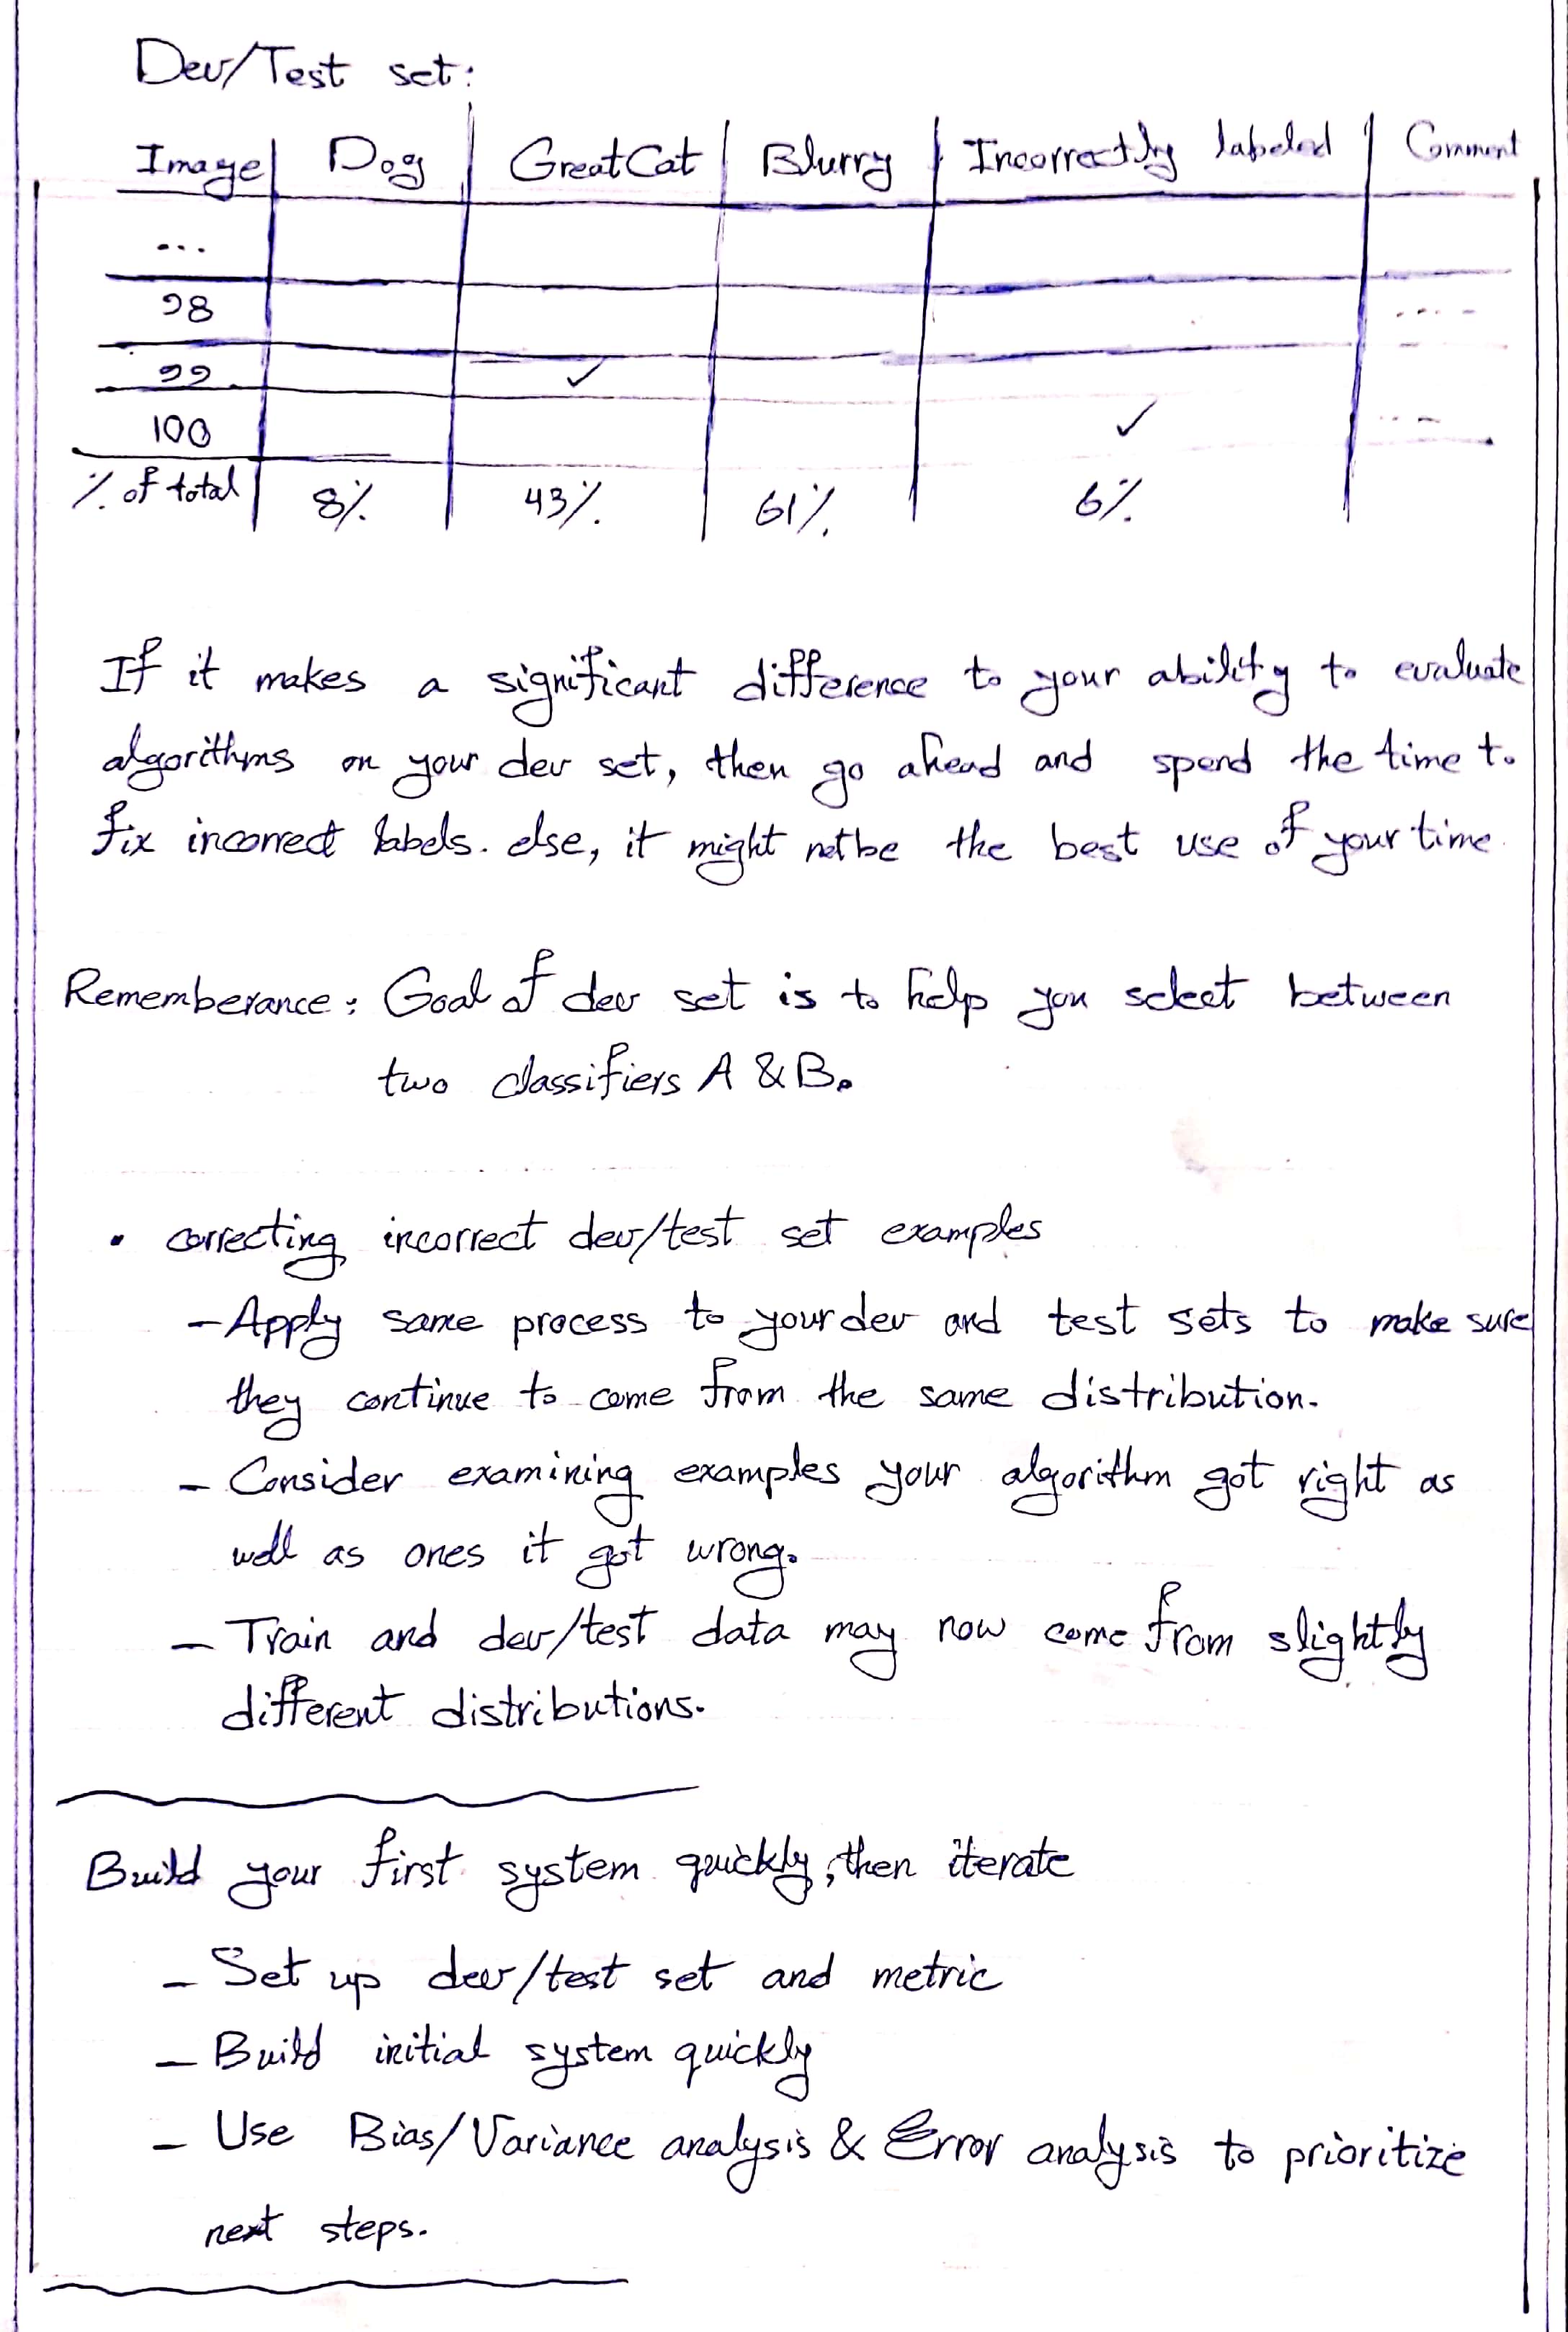 Dev/Test set:
Image | Dog | Great Cat | Blurry | Incorrectly labeled | Comment
...
98 ....
99 ✓
100 ✓ ...
% of total | 8% | 43% | 61% | 6%
If it makes a significant difference to your ability to evaluate
algorithms on your dev set, then go ahead and spend the time to
fix incorrect labels. else, it might not be the best use of your time.
Rememberance: Goal of dev set is to help you select between
two classifiers A & B.
• correcting incorrect dev/test set examples
- Apply same process to your dev and test sets to make sure
they continue to come from the same distribution.
- Consider examining examples your algorithm got right as
well as ones it got wrong.
- Train and dev/test data may now come from slightly
different distributions.
Build your first system quickly, then iterate
- Set up dev/test set and metric
- Build initial system quickly
- Use Bias/Variance analysis & Error analysis to prioritize
next steps.